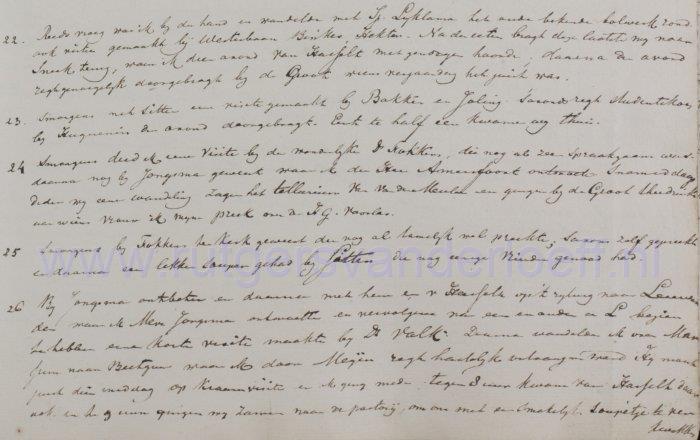 22. Reeds vroeg was ik bij de hand en wandelde met Tj. Lyklama het oude bekende bolwerk rond
ook visite gemaakt bij Westerbaan Binkes, Hokken. Na den eten bragt deze laatste mij naar
Sneek terug, waar ik dien avond van Hasselt met genoegen hoorde, daarna de avond
regt genoegelijk doorgebragt bij de Groot wiens verjaardag het juist was.
23. Smorgens met Sitter een visite gemaakt bij Bakker en Joling. Savonds regt studentikoos
bij Huguenin de avond doorgebragt. Eerst te half een kwam wij thuis.
24 Smorgens deed ik eene Visite bij de vrouwelijke D. Fokkens, die nog al zeer spraakzaam was
daarna nog bij Jongsma geweest waar ik de Heer Amersfoort ontmoet. Snamiddags
deden wij eene wandeling zagen het tellurium van v.d. Meulen en gingen bij de Groot theedrinken
aan wiens vrouw ik mijne preek om de H.G. voorlas.
25 Smorgens bij Fokkens ter kerk geweest die nog al tamelijk wel preekte, savonds zelf gepreekt
en daarna een lekker souper gehad bij Sitter die nog eenige vrienden genood had.
26 Bij Jongsma ontbeten en daarna met hem en v Hasselt op 't rijtuig naar Leeuwar
den waar ik Mevr Jongsma ontmoette en vervolgens na een en ander in L. bezien
te hebben eene korte visite maakte bij Ds Valk. Daarna wandelde ik over Mar
sum naar Beetgum waar ik door Meijer regt hartelijk ontvangen werd. Hij moest
juist dien middag op kraamvisite en ik ging mede, tegen 8 uur kwam van Hasselt daar
ook en te 9 uur gingen wij zamen naar de pastorij, om ons met een smakelijk soupétje te ver
kwikken
www.rutgersvanderloeff.nl